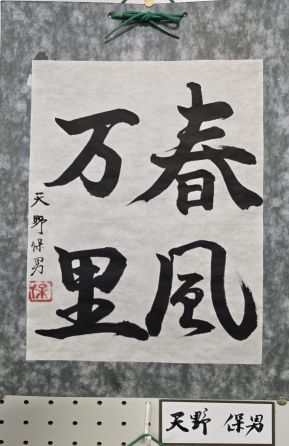 春風
万里
天野保男
保
天野 保男